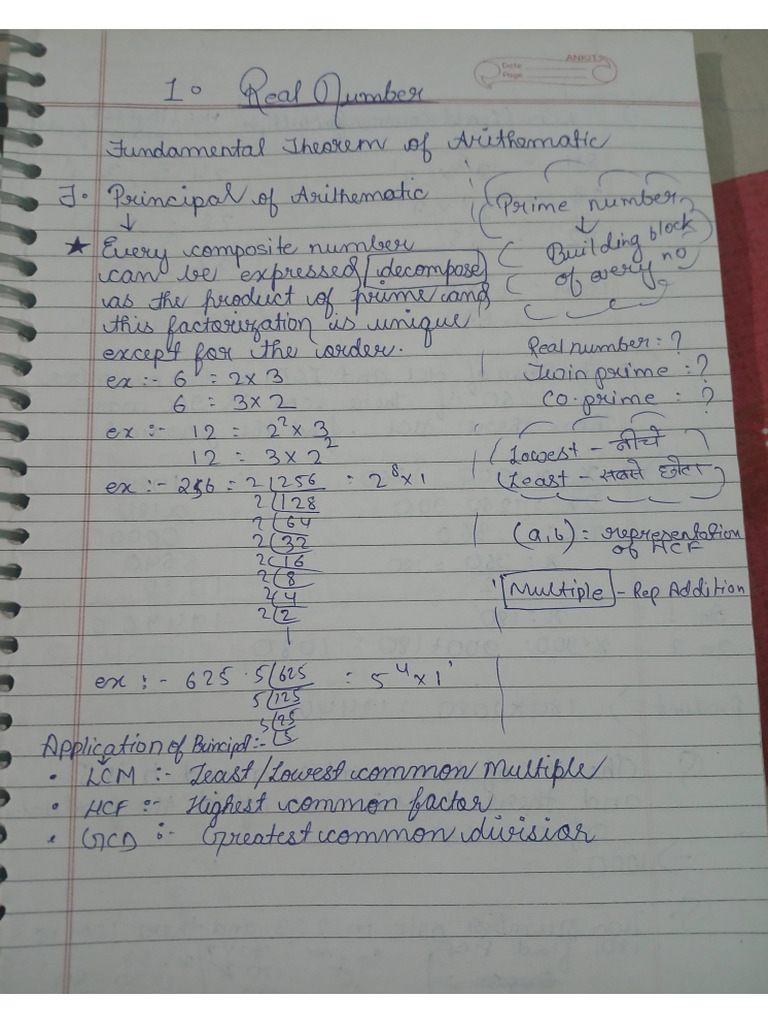 ANKIT
Date
Page
1. Real Number
Fundamental Theorem of Arithematic
I. Principal of Arithematic
↓
★ Every composite number
can be expressed/decompose
as the product of prime and
this factorization is unique
except for the order.
ex :- 6 = 2x3
6 = 3x2
ex :- 12 = 2² x 3
12 = 3 x 2²
ex :- 256 = 2 256 = 2⁸x1
2 128
2 64
2 32
2 16
2 8
2 4
2 2
1
ex :- 625 . 5 625 = 5⁴x1¹
5 125
5 25
5 5
Application of Principl :-
• LCM :- Least/Lowest common multiple
• HCF :- Highest common factor
• GCD :- Greatest common divisior
Prime number
↓
Building block
of every no
Real number = ?
Twin prime = ?
Co-prime = ?
Lowest - नीचे
Least - सबसे छोटा
(a,b) = representation
of HCF
Multiple - Rep Addition